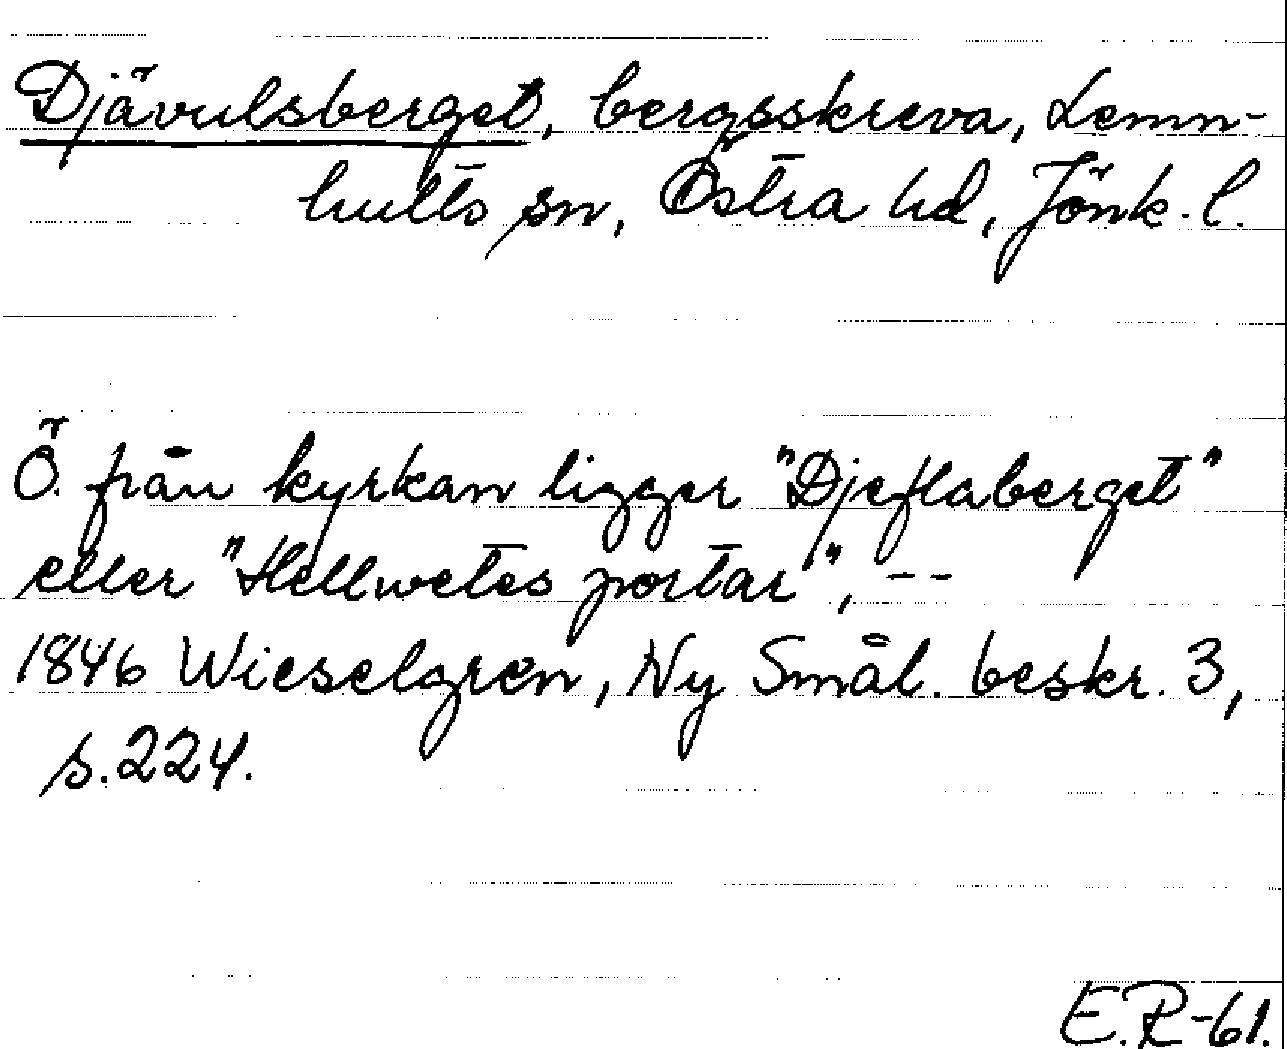 Djävulsberget, bergsskreva, Lemn-
hults sn, Östra hd, Jönk. l.
Ö. från kyrkan ligger "Djeflaberget"
eller "Hellwetes portar", --
1846 Wieselgren, Ny Smål. beskr. 3,
s. 224.
E.R-61.